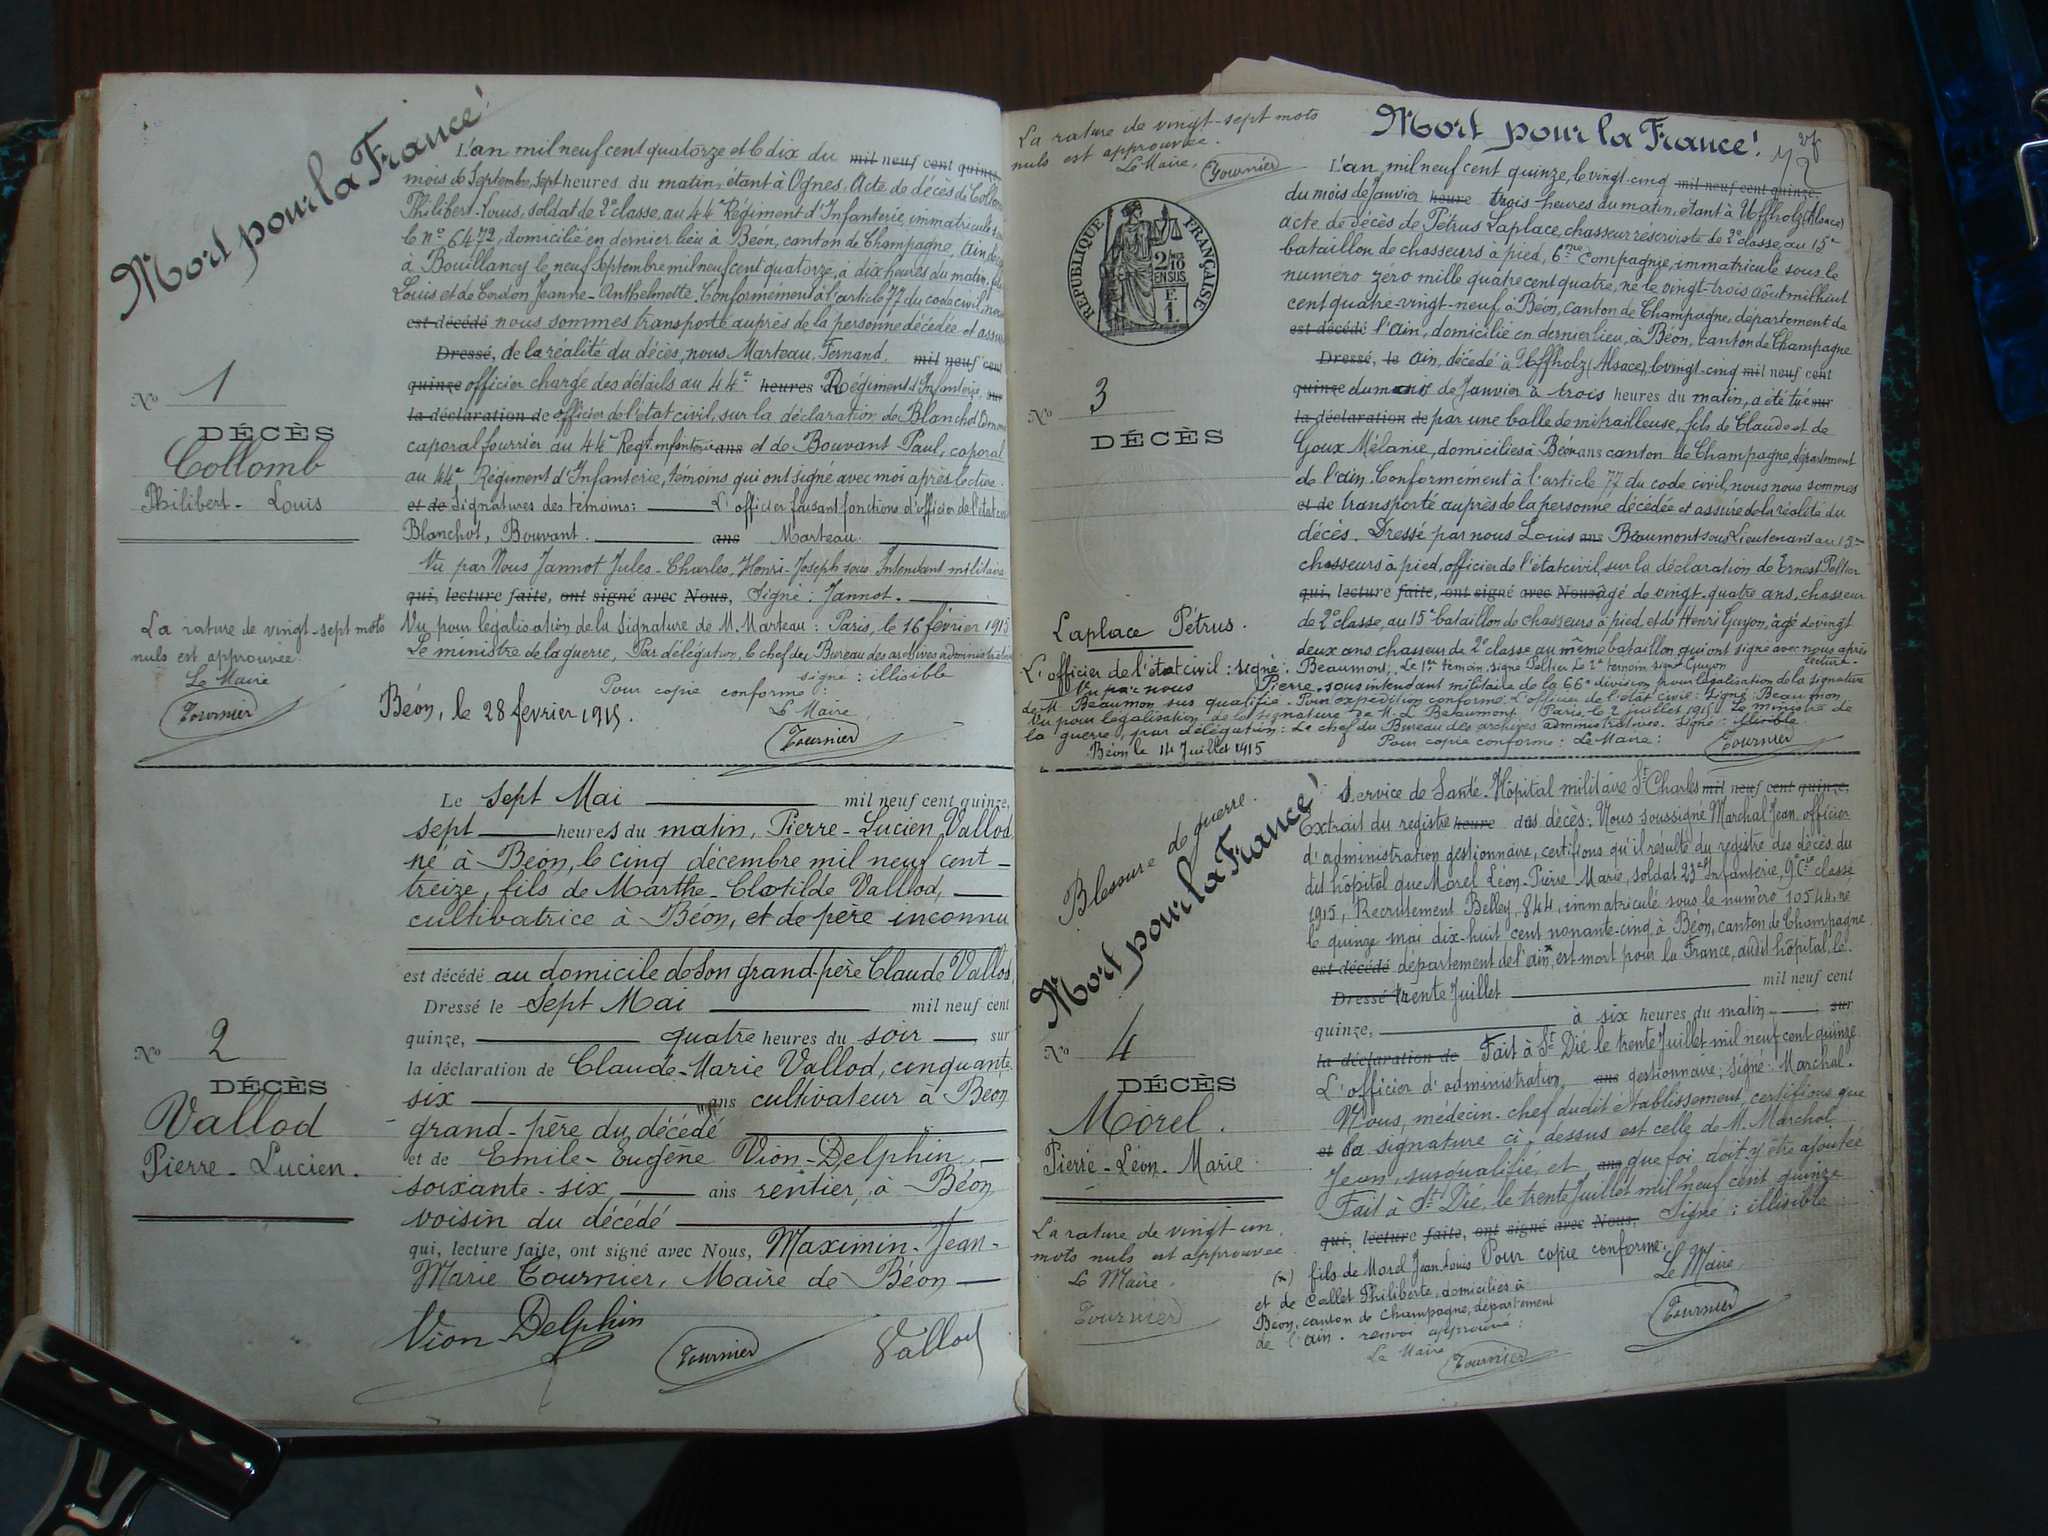 Mort pour la France!
L'an mil neuf cent quatorze et le dix du mil neuf cent quinze
mois de Septembre, sept heures du matin, étant à Ognes, Acte de décès de Collomb
Philibert-Louis, soldat de 2e classe, au 44e Régiment d'Infanterie, immatriculé sous
le No 6472, domicilié en dernier lieu à Béon, canton de Champagne, Ain, décédé
à Bouillancy le neuf Septembre mil neuf cent quatorze, à dix heures du matin, fils
Louis et de Cordon Jeanne-Anthelmette. Conformément à l'article 77 du code civil, nous
est décédé nous sommes transporté auprès de la personne décédée et assuré
Dressé, de la réalité du décès, nous Marteau, Fernand. mil neuf cent
quinze officier chargé des détails au 44e heures Régiment d'Infanterie, sur
la déclaration de officier de l'état civil, sur la déclaration de Blanchot
caporal fourrier au 44e Regt. infanterie ans et de Bouvant Paul, caporal
au 44e Régiment d'Infanterie, témoins qui ont signé avec moi après lecture.
et de Signatures des témoins: L'officier faisant fonctions d'officier de l'état civil
Blanchot, Bouvant. ans Marteau.
Vu par Nous Jannot Jules-Charles, Henri-Joseph sous Intendant militaire
qui, lecture faite, ont signé avec Nous, Signé: Jannot.
Vu pour légalisation de la signature de M. Marteau: Paris, le 16 février 1915
Le ministre de la guerre, Par délégation, le chef du Bureau des archives administratives
signé: illisible
Pour copie conforme:
Béon, le 28 février 1915.
Le Maire,
Tournier
No 1
DÉCÈS
Collomb
Philibert-Louis
La rature de vingt-sept mots
nuls est approuvée.
Le Maire
Tournier
Le sept Mai mil neuf cent quinze,
sept heures du matin, Pierre-Lucien Vallod
né à Béon, le cinq décembre mil neuf cent-
treize, fils de Marthe-Clotilde Vallod,
cultivatrice à Béon, et de père inconnu
est décédé au domicile de son grand-père Claude Vallod,
Dressé le Sept Mai mil neuf cent
quinze, quatre heures du soir, sur
la déclaration de Claude-Marie Vallod, cinquante-
six ans cultivateur à Béon
grand-père du décédé
et de Emile-Eugène Vion-Delphin
soixante-six, ans rentier, à Béon
voisin du décédé
qui, lecture faite, ont signé avec Nous, Maximin-Jean-
Marie Tournier, Maire de Béon
Vion Delphin Tournier Vallod
No 2
DÉCÈS
Vallod
Pierre-Lucien.
La rature de vingt-sept mots
nuls est approuvée.
Le Maire, Tournier
Mort pour la France!
RÉPUBLIQUE FRANÇAISE
2/10 EN SUS
L'an mil neuf cent quinze, le vingt-cinq mil neuf cent quinze
du mois de Janvier heure trois heures du matin, étant à Uffholz (Alsace)
acte de décès de Pétrus Laplace, chasseur réserviste de 2e classe, au 15e
bataillon de chasseurs à pied, 6me Compagnie, immatriculé sous le
numéro zéro mille quatre cent quatre, né le vingt-trois août mil huit
cent quatre-vingt-neuf à Béon, canton de Champagne, département de
est décédé l'Ain, domicilié en dernier lieu, à Béon, canton de Champagne
Dressé, le Ain, décédé à Uffholz (Alsace), le vingt-cinq mil neuf cent
quinze du mois de Janvier à trois heures du matin, a été tué sur
la déclaration de par une balle de mitrailleuse, fils de Claude et de
Goux Mélanie, domiciliés à Béon ans canton de Champagne, département
de l'Ain. Conformément à l'article 77 du code civil, nous nous sommes
et de transporté auprès de la personne décédée et assuré de la réalité du
décès. Dressé par nous Louis ans Beaumont sous Lieutenant au 15e
chasseurs à pied, officier de l'état civil, sur la déclaration de Ernest Peltier
qui, lecture faite, ont signé avec Nous âgé de vingt-quatre ans, chasseur
de 2e classe, au 15e bataillon de chasseurs à pied, et de Henri Guyon, âgé de vingt
deux ans chasseur de 2e classe au même bataillon, qui ont signé avec nous après
lecture.
L'officier de l'état civil: signé: Beaumont; Le 1er témoin, signé Peltier Le 2e témoin signé Guyon
Vu par nous Pierre, sous intendant militaire de la 66e division pour légalisation de la signature
de M. Beaumon sus qualifié. Pour expédition conforme: L'officier de l'état civil: Signé: Beaumon
Vu pour légalisation de la signature de M. L. Beaumont. Paris, le 2 juillet 1915 Le ministre de
la guerre, par délégation: Le chef du Bureau des archives administratives. Signé: illisible.
Béon le 14 Juillet 1915 Pour copie conforme: Le Maire: Tournier
No 3
DÉCÈS
Laplace Pétrus.
Blessure de guerre.
Mort pour la France!
Service de Santé. Hôpital militaire St Charles mil neuf cent quinze,
Extrait du registre heure des décès: Nous soussigné Marchal Jean officier
d'administration gestionnaire, certifions qu'il résulte du registre des décès du
dit hôpital que Morel Léon-Pierre-Marie, soldat 23e Infanterie, 9e Cie classe
1915, Recrutement Belley, 844, immatriculé sous le numéro 10544, né
le quinze mai dix-huit cent nonante-cinq, à Béon, canton de Champagne
est décédé département de l'Ain x, est mort pour la France, audit hôpital, le
Dressé trente Juillet mil neuf cent
quinze, à six heures du matin sur
la déclaration de Fait à St Dié le trente Juillet mil neuf cent quinze
L'officier d'administration ans gestionnaire; signé: Marchal.
Nous, médecin-chef dudit établissement, certifions que
et la signature ci-dessus est celle de M. Marchal
Jean, susqualifié, et ans que foi doit y être ajoutée
Fait à St Dié, le trente Juillet mil neuf cent quinze
qui, lecture faite, ont signé avec Nous, Signé: illisible
(x) fils de Morel Jean-Louis Pour copie conforme:
et de Callet Philiberte, domiciliés à Le Maire,
Béon, canton de Champagne, département Tournier
de l'Ain. renvoi approuvé:
Le Maire Tournier
No 4
DÉCÈS
Morel.
Pierre-Léon-Marie
La rature de vingt un
mots nuls est approuvée
Le Maire,
Tournier